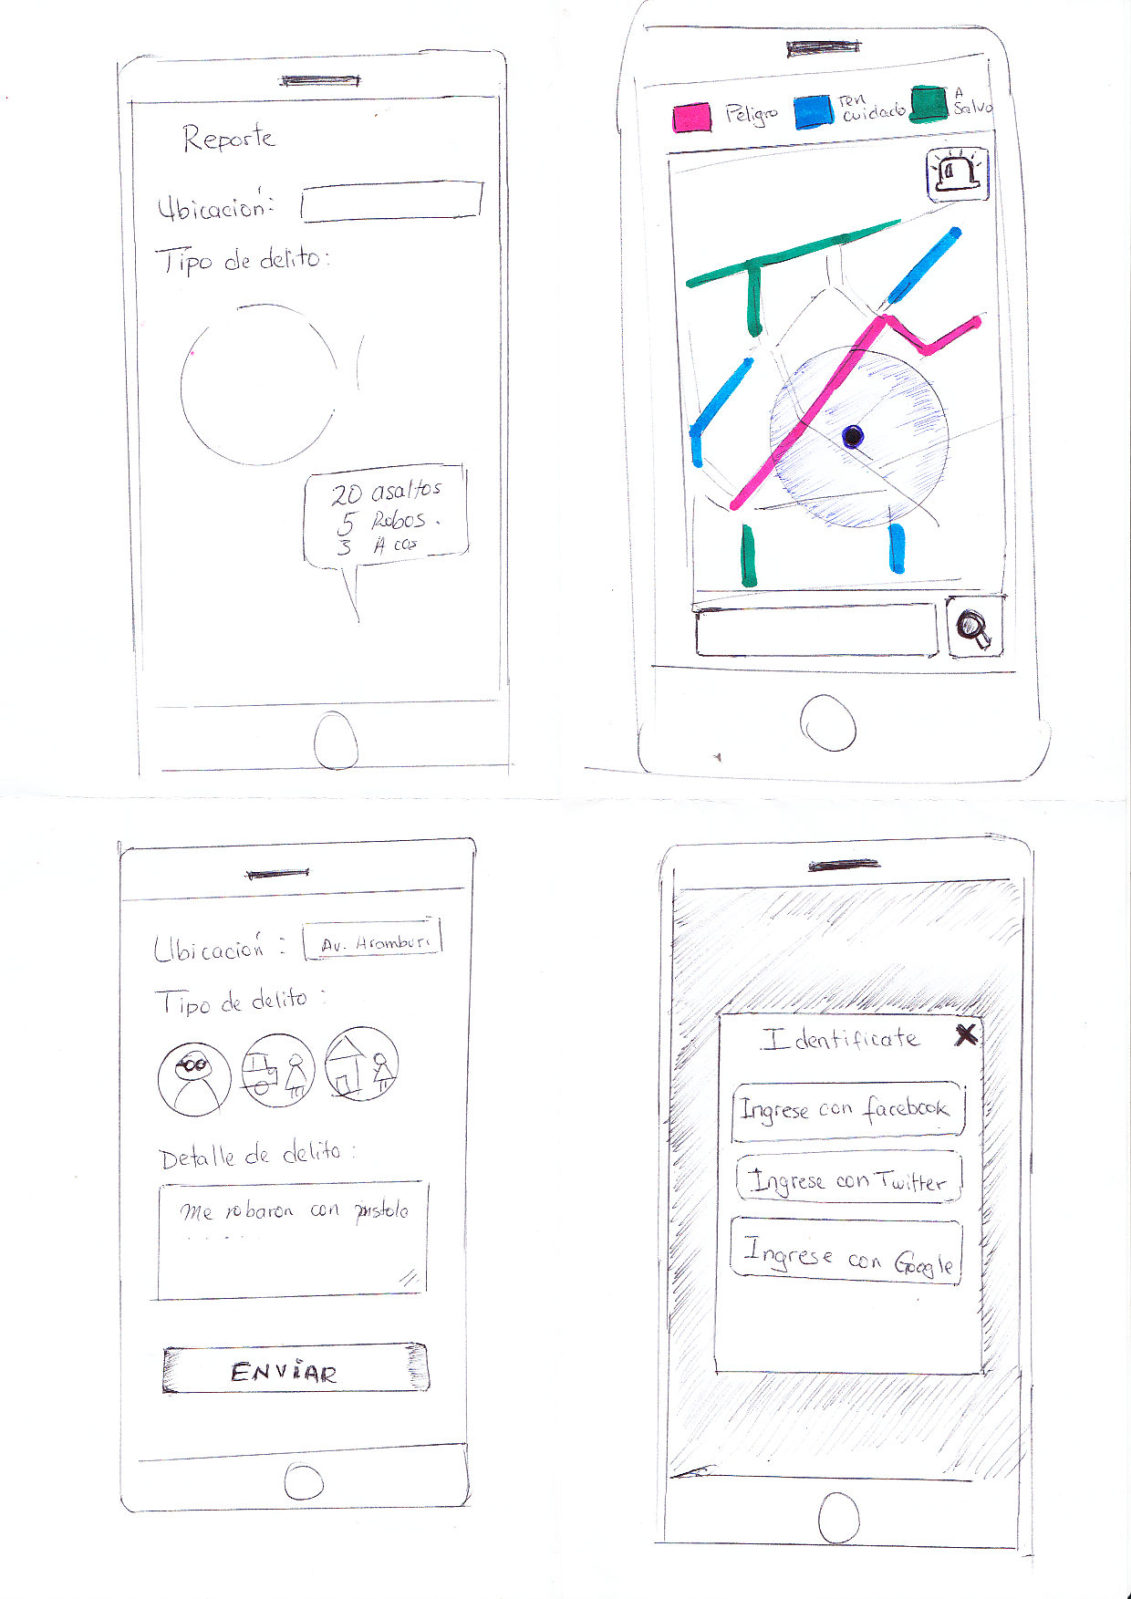 Reporte
Ubicación:
Tipo de delito:
20 asaltos
5 Robos.
3 Acos
Peligro
ten cuidado
A Salvo
Ubicación: Av. Aramburi
Tipo de delito:
Detalle de delito:
Me robaron con pistola
.....
ENViAR
Identificate X
Ingrese con facebook
Ingrese con Twitter
Ingrese con Google